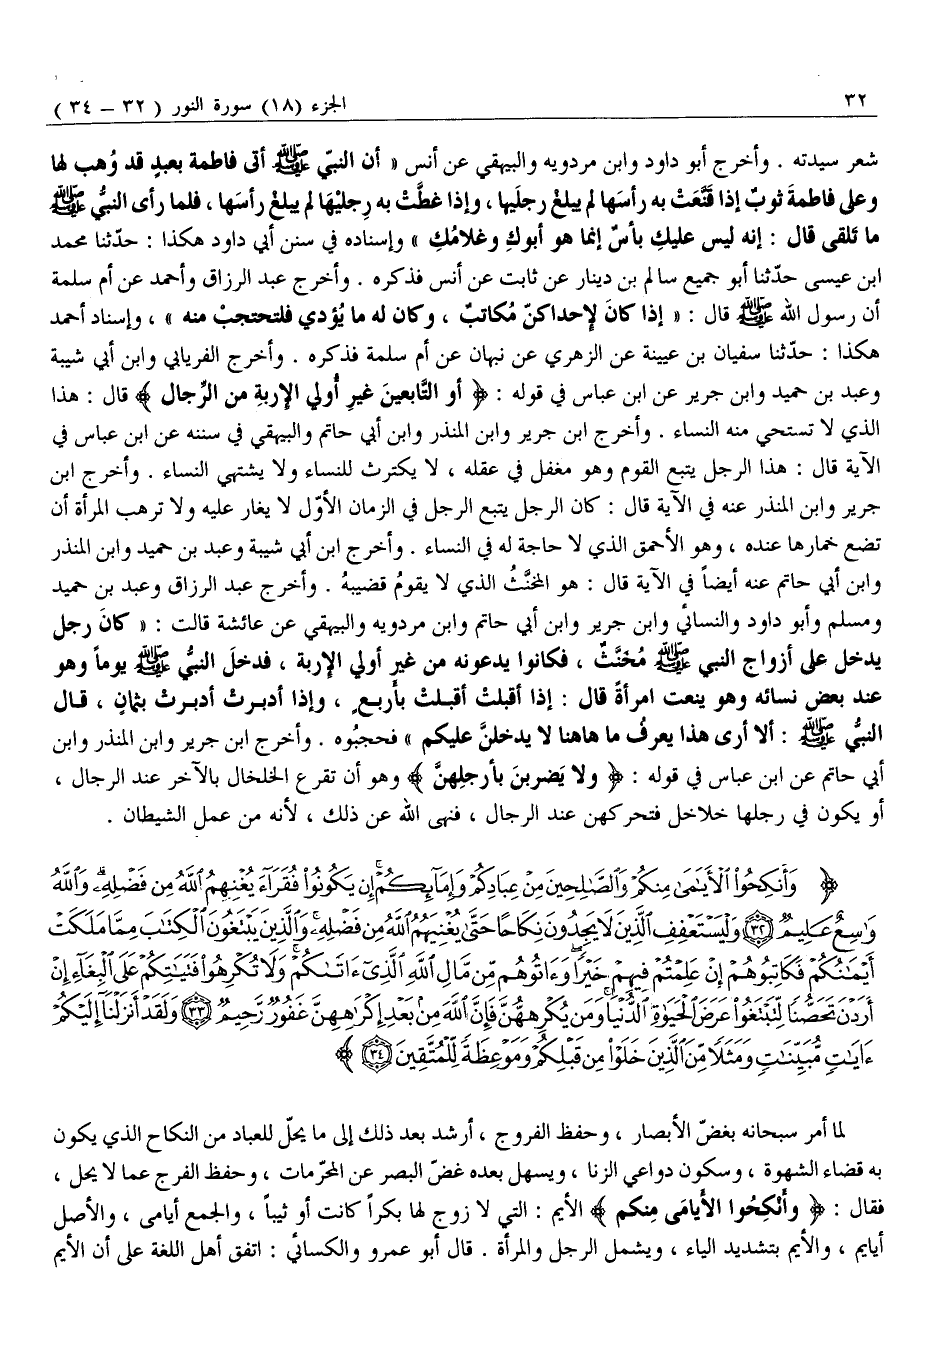 ٣٢
الجزء (١٨) سورة النور ( ٣٢ – ٣٤ )
شعر سيدته . وأخرج أبو داود وابن مردويه والبيهقي عن أنس « أن النبيّ ﷺ أتى فاطمة بعبدٍ قد وُهب لها
وعلى فاطمةَ ثوبٌ إذا قَنَّعَتْ به رأسَها لم يبلغْ رجلَيها ، وإذا غطَّتْ به رِجليْهَا لم يبلغْ رأسَها ، فلما رأى النبيُّ ﷺ
ما تَلقى قال : إنه ليس عليكِ بأسٌ إنما هو أبوكِ وغلامُكِ » وإسناده في سنن أبي داود هكذا : حدّثنا محمد
ابن عيسى حدّثنا أبو جميع سالم بن دينار عن ثابت عن أنس فذكره . وأخرج عبد الرزاق وأحمد عن أم سلمة
أن رسول الله ﷺ قال : « إذا كانَ لإحداكنّ مُكاتبٌ ، وكان له ما يُؤدي فلتحتجبْ منه » ، وإسناد أحمد
هكذا : حدّثنا سفيان بن عيينة عن الزهري عن نبهان عن أم سلمة فذكره . وأخرج الفريابي وابن أبي شيبة
وعبد بن حميد وابن جرير عن ابن عباس في قوله : ﴿ أو التَّابعينَ غيرِ أُولي الإربةِ من الرِّجال ﴾ قال : هذا
الذي لا تستحي منه النساء . وأخرج ابن جرير وابن المنذر وابن أبي حاتم والبيهقي في سننه عن ابن عباس في
الآية قال : هذا الرجل يتبع القوم وهو مغفل في عقله ، لا يكترث للنساء ولا يشتهي النساء . وأخرج ابن
جرير وابن المنذر عنه في الآية قال : كان الرجل يتبع الرجل في الزمان الأوّل لا يغار عليه ولا ترهب المرأة أن
تضع خمارها عنده ، وهو الأحمق الذي لا حاجة له في النساء . وأخرج ابن أبي شيبة وعبد بن حميد وابن المنذر
وابن أبي حاتم عنه أيضاً في الآية قال : هو المخنَّثُ الذي لا يقومُ قضيبهُ . وأخرج عبد الرزاق وعبد بن حميد
ومسلم وأبو داود والنسائي وابن جرير وابن أبي حاتم وابن مردويه والبيهقي عن عائشة قالت : « كانَ رجل
يدخل على أزواج النبي ﷺ مُخنَّثٌ ، فكانوا يدعونه من غيرِ أولي الإربة ، فدخلَ النبيُّ ﷺ يوماً وهو
عند بعض نسائه وهو ينعت امرأةً قال : إذا أقبلتْ أقبلتْ بأربعٍ ، وإذا أدبرتْ أدبرتْ بثمانٍ ، قال
النبيُّ ﷺ : ألا أرى هذا يعرفُ ما هاهنا لا يدخلنَّ عليكم » فحجبُوه . وأخرج ابن جرير وابن المنذر وابن
أبي حاتم عن ابن عباس في قوله : ﴿ ولا يَضربنَ بأرجلِهنَّ ﴾ وهو أن تقرع الخلخال بالآخر عند الرجال ،
أو يكون في رجلها خلاخل فتحركهن عند الرجال ، فنهى الله عن ذلك ، لأنه من عمل الشيطان .
﴿ وَأَنكِحُوا۟ ٱلْأَيَـٰمَىٰ مِنكُمْ وَٱلصَّـٰلِحِينَ مِنْ عِبَادِكُمْ وَإِمَآئِكُمْ ۚ إِن يَكُونُوا۟ فُقَرَآءَ يُغْنِهِمُ ٱللَّهُ مِن فَضْلِهِۦ ۗ وَٱللَّهُ
وَٰسِعٌ عَلِيمٌ ۝٣٢ وَلْيَسْتَعْفِفِ ٱلَّذِينَ لَا يَجِدُونَ نِكَاحًا حَتَّىٰ يُغْنِيَهُمُ ٱللَّهُ مِن فَضْلِهِۦ ۗ وَٱلَّذِينَ يَبْتَغُونَ ٱلْكِتَـٰبَ مِمَّا مَلَكَتْ
أَيْمَـٰنُكُمْ فَكَاتِبُوهُمْ إِنْ عَلِمْتُمْ فِيهِمْ خَيْرًا ۖ وَءَاتُوهُم مِّن مَّالِ ٱللَّهِ ٱلَّذِىٓ ءَاتَىٰكُمْ ۚ وَلَا تُكْرِهُوا۟ فَتَيَـٰتِكُمْ عَلَى ٱلْبِغَآءِ إِنْ
أَرَدْنَ تَحَصُّنًا لِّتَبْتَغُوا۟ عَرَضَ ٱلْحَيَوٰةِ ٱلدُّنْيَا ۚ وَمَن يُكْرِههُّنَّ فَإِنَّ ٱللَّهَ مِنۢ بَعْدِ إِكْرَٰهِهِنَّ غَفُورٌ رَّحِيمٌ ۝٣٣ وَلَقَدْ أَنزَلْنَآ إِلَيْكُمْ
ءَايَـٰتٍ مُّبَيِّنَـٰتٍ وَمَثَلًا مِّنَ ٱلَّذِينَ خَلَوْا۟ مِن قَبْلِكُمْ وَمَوْعِظَةً لِّلْمُتَّقِينَ ۝٣٤ ﴾
لما أمر سبحانه بغضّ الأبصار ، وحفظ الفروج ، أرشد بعد ذلك إلى ما يحلّ للعباد من النكاح الذي يكون
به قضاء الشهوة ، وسكون دواعي الزنا ، ويسهل بعده غضّ البصر عن المحرّمات ، وحفظ الفرج عما لا يحل ،
فقال : ﴿ وأَنْكِحُوا الأيامَى مِنكم ﴾ الأيم : التي لا زوج لها بكراً كانت أو ثيباً ، والجمع أيامى ، والأصل
أيايم ، والأيم بتشديد الياء ، ويشمل الرجل والمرأة . قال أبو عمرو والكسائي : اتفق أهل اللغة على أن الأيم